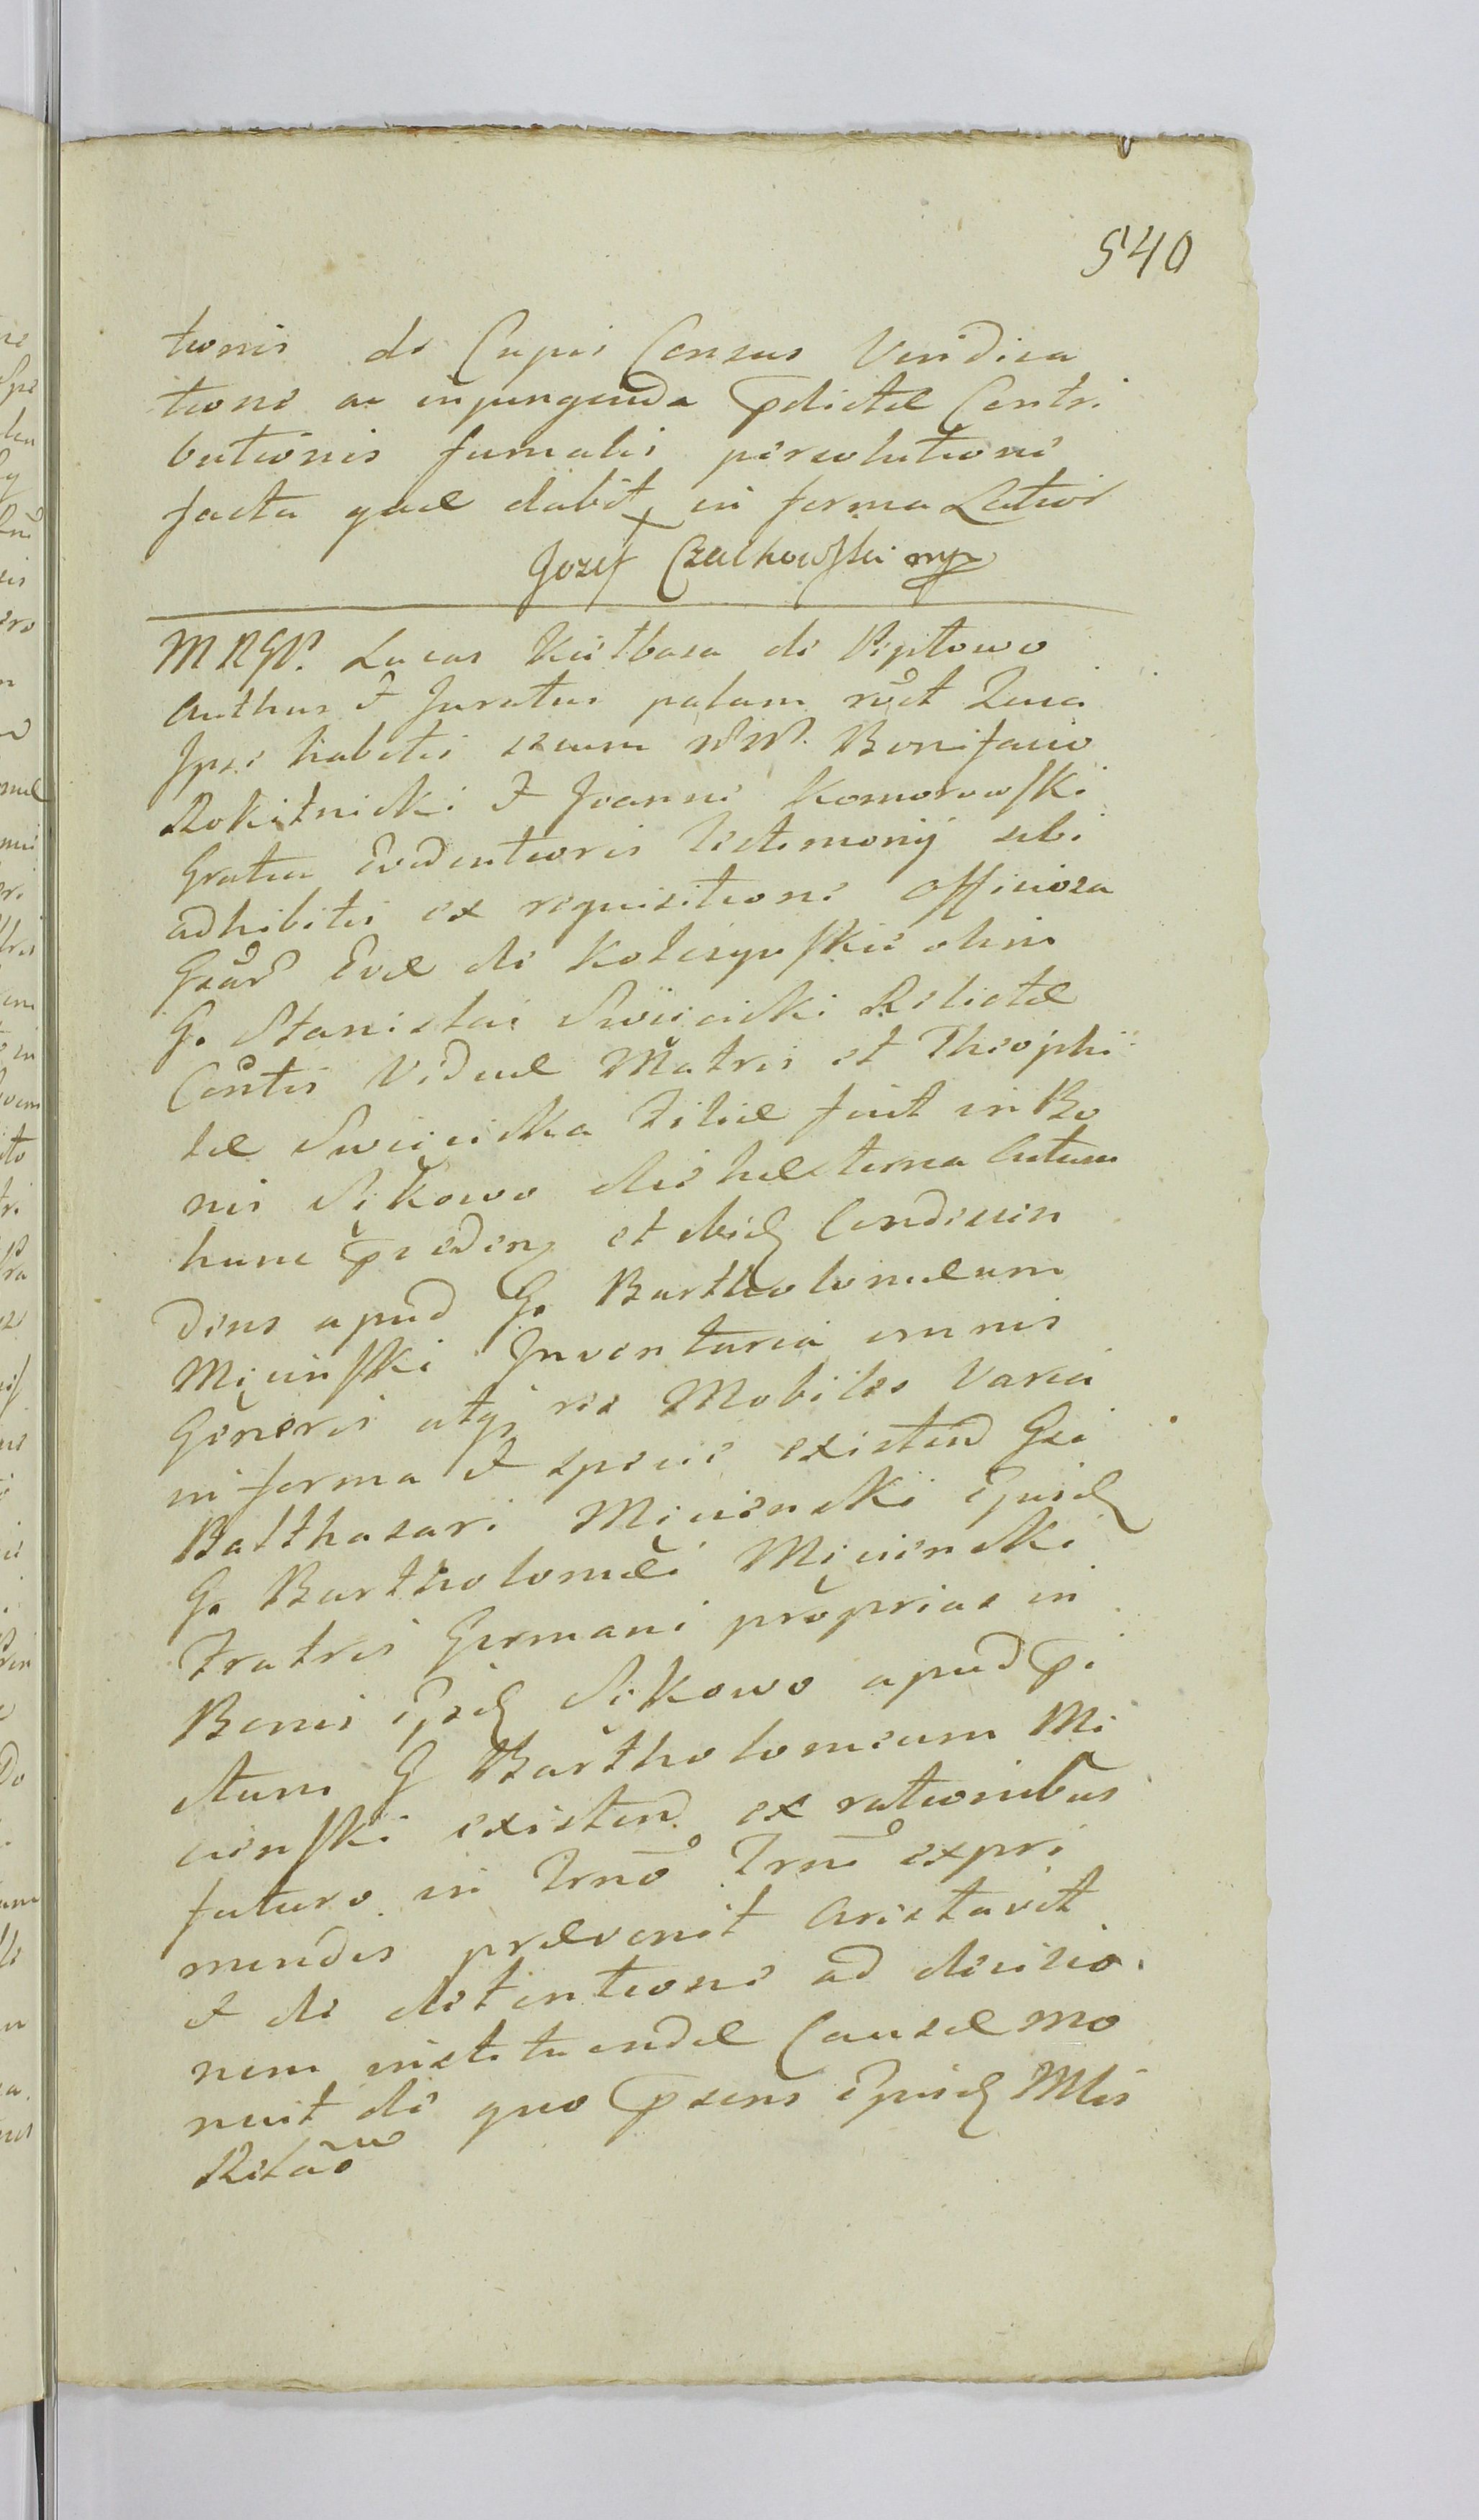 540
tionis de Cujus Census Veridica
tione ac injungenda Pdictæ Contri
butionis fumalis persolutione
facta quæ dabit in forma Latiori
Jozef Czalkowski mp
MRGP. Lucas Kiełbasa de Piptowo
Authus & Juratus palam rect Quia
Ipse habitis secum NN. Bonifacio
Rokitnicki & Joanne Komorowski
Gratia Evidentioris Testimonij sibi
adhibitis ex requisitione officiosa
Gsar Evæ de Kolczynskie olim
G. Stanislai Swiecicki Relictæ
Contis Viduæ Matris et Theophi
læ Swiecicka Filiæ fuit in Bo
nis Sikowo die hesterna Actum
hunc Pceden et ibid Condiscen
dens apud G. Bartholomæum
Miciński Inventaria omnis
Generis atq res Mobiles Varia
in forma & specie existen Gsi
Balthasari Micienski Ejusd
G. Bartholomei Micienski
Fratris Germani proprias in
Bonis ejsd Sikowo apud Pi
ctum G Bartholomeum Mi
cienski existen ex rationibus
futuro in Trno Trno expri
mendis prævenit Aristavit
& de detentione ad decisio
nem instituendæ Causæ mo
nuit de quo Psens Ejusd Mlis
Relao